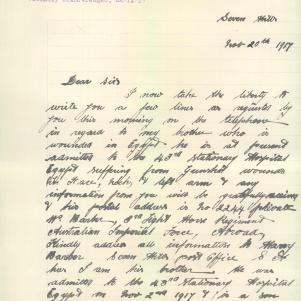 Seven Hills
Nov 20th 1917
Dear Sir
I now take the liberty to
write you a few lines as requested by
you this morning on the telephone
in regard to my brother who is
wounded in Egypt he is at present
admitted to the 43rd Stationary Hospital
Egypt suffering from Gunshot wounds
in Face, Neck, & left arm & any
information from you will be gratefully received
& his postal address is No 2244
W. Barber, 9th Light Horse Regiment
Australian Imperial Force, Abroad
Kindly address all information to Harry
Barber Seven Hills post Office S. A
her I am his brother. He was
admitted to the 43rd Stationary Hospital
Egypt on Nov 2nd 1917 & is a son